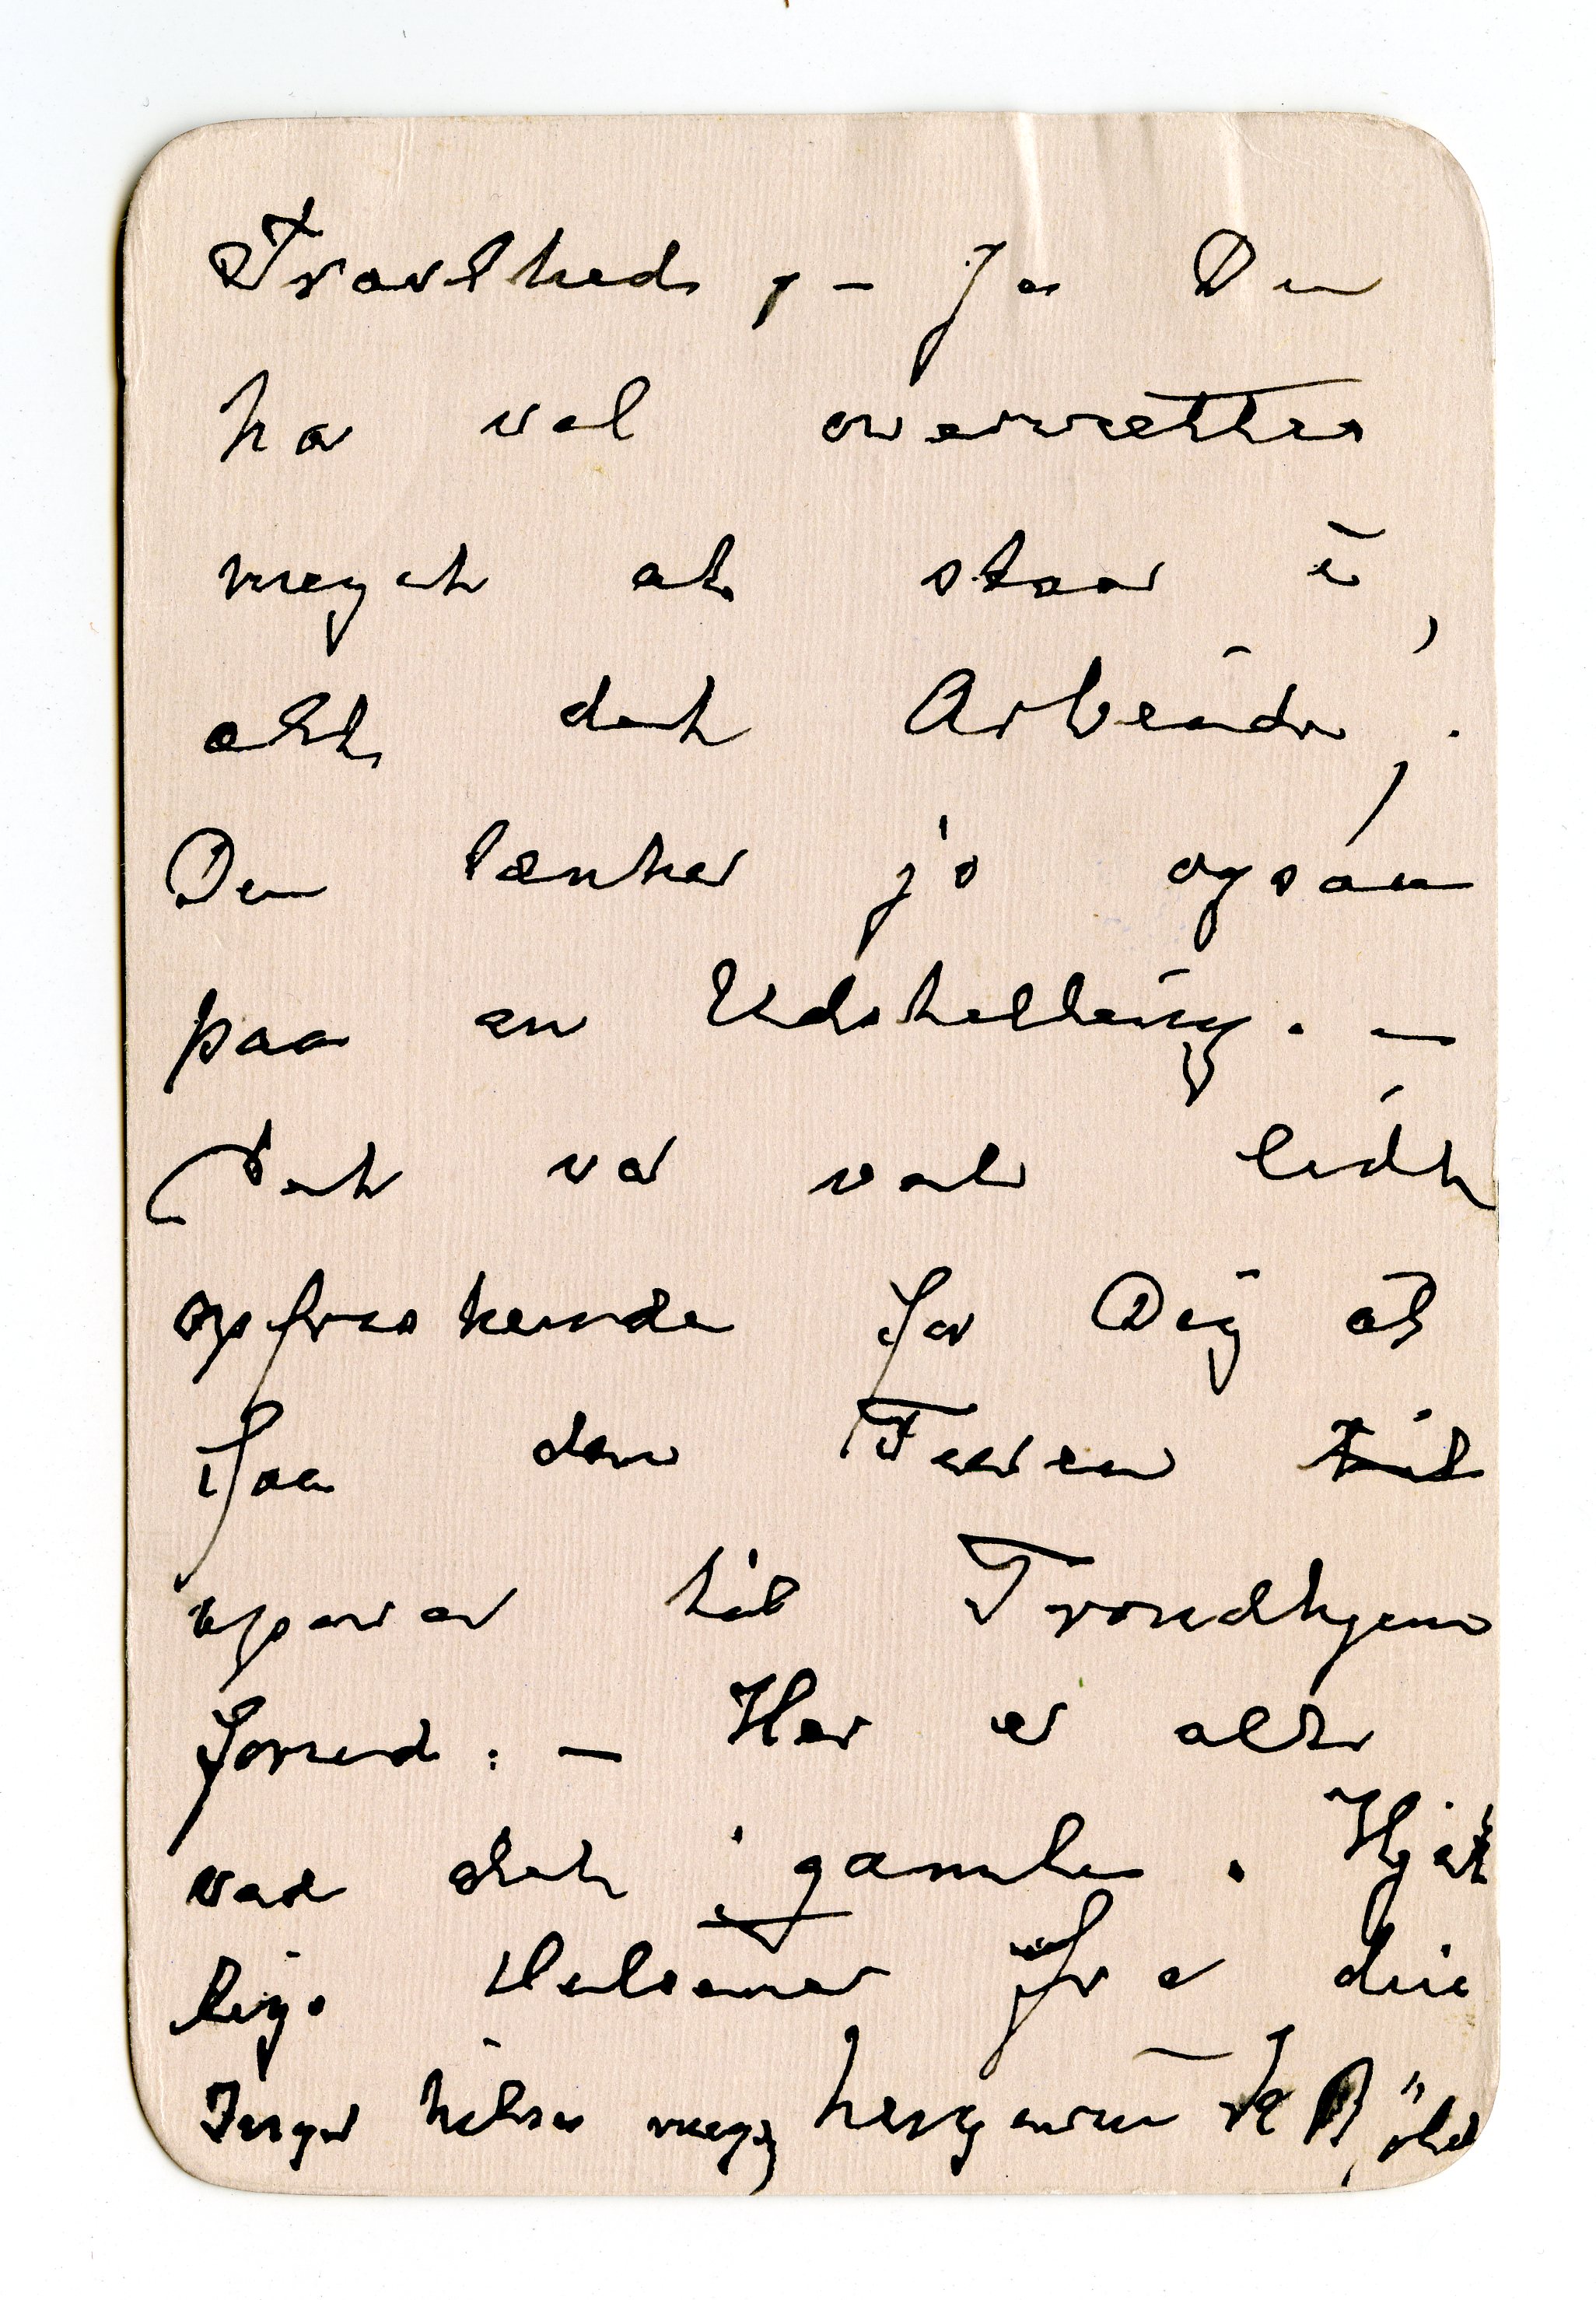 Travlhed, – Ja Du
ha vel overrættes
meget at staa i,
alt det Arbeide,.
Du tænker jo ogsaa
paa en Udstelling. –
Det va vel lidt
opfriskende for Dig at
faa den Turen til
opover til Trondhjem
forrud: – Her er alt
ved det gamle. Hjæt
lige Helsener fra din
Inger hilser meget